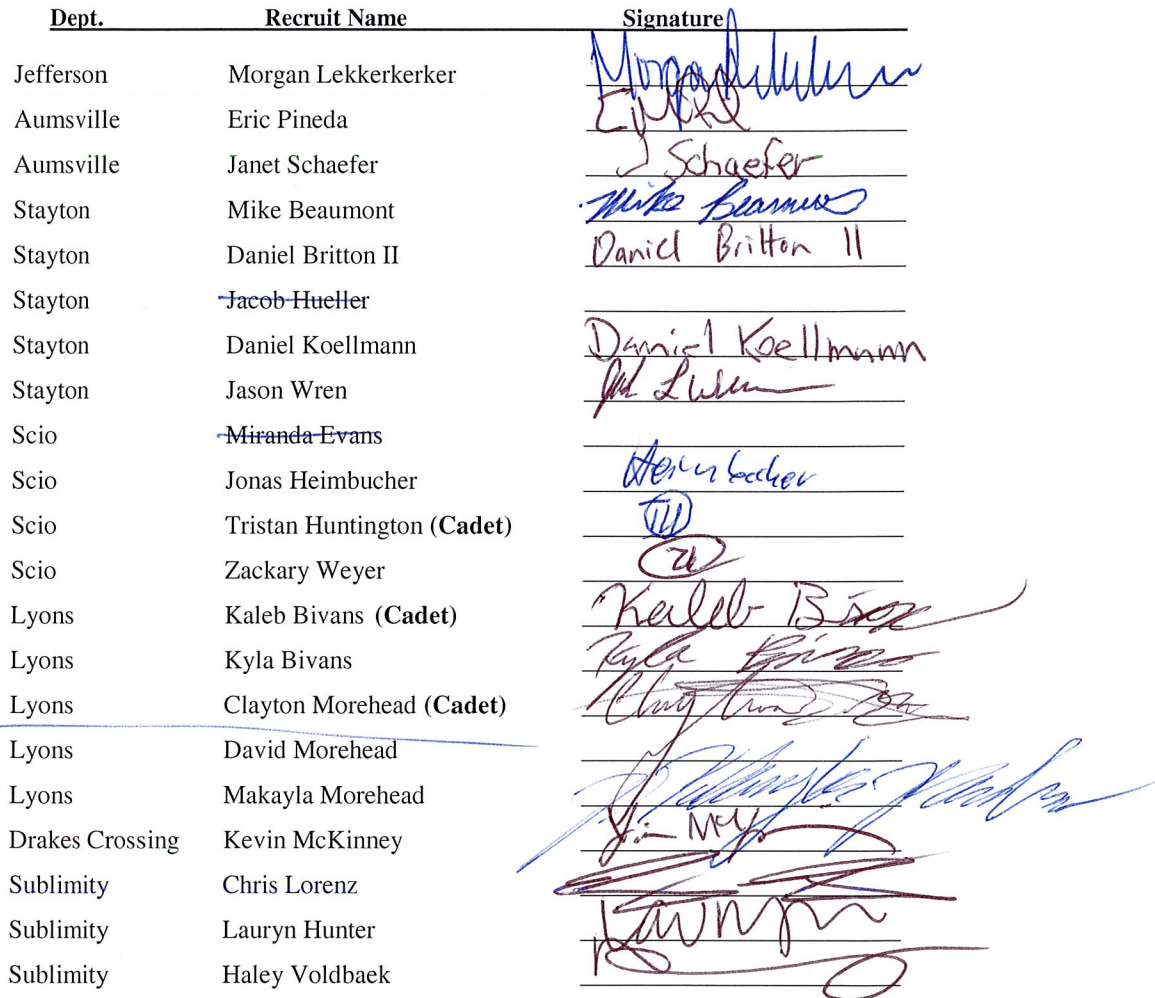 Dept. Recruit Name Signature
Jefferson Morgan Lekkerkerker Morgan
Aumsville Eric Pineda
Aumsville Janet Schaefer J Schaefer
Stayton Mike Beaumont Mike
Stayton Daniel Britton II Daniel Britton II
Stayton Jacob Hueller
Stayton Daniel Koellmann Daniel Koellmann
Stayton Jason Wren
Scio Miranda Evans
Scio Jonas Heimbucher Heimbucher
Scio Tristan Huntington (Cadet)
Scio Zackary Weyer
Lyons Kaleb Bivans (Cadet) Kaleb
Lyons Kyla Bivans Kyla
Lyons Clayton Morehead (Cadet)
Lyons David Morehead
Lyons Makayla Morehead
Drakes Crossing Kevin McKinney
Sublimity Chris Lorenz
Sublimity Lauryn Hunter
Sublimity Haley Voldbaek